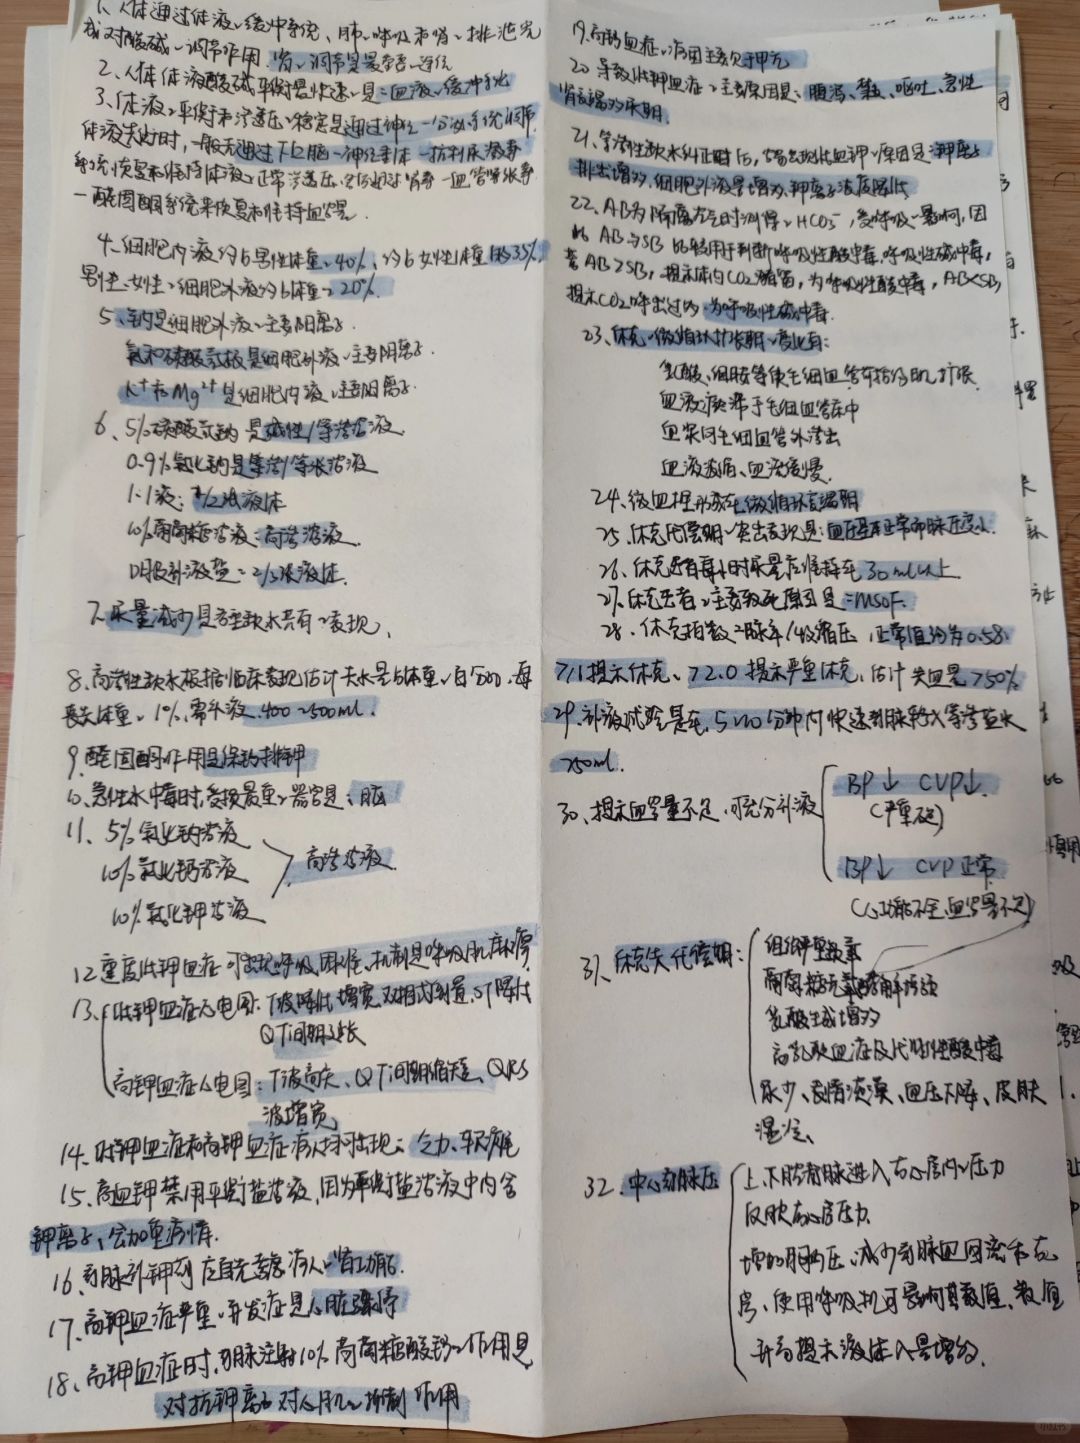 1、人体通过体液、缓冲系统、肺、呼吸和肾、排泄完
成对酸碱、调节作用.肾、调节是最重要、途径
2、人体体液酸碱平衡最快速、是:血液、缓冲系统
3、体液、平衡和渗透压、稳定是通过神经-内分泌系统调节.
体液失衡时,一般先通过下丘脑-神经垂体-抗利尿激素
系统恢复和维持体液、正常渗透压,然后通过肾素-血管紧张素
-醛固酮系统来恢复和维持血容量.
4、细胞内液约占男性体重、40%、约占女性体重的35%
男性、女性、细胞外液约占体重、20%.
5、钠是细胞外液、主要阳离子.
氯和碳酸氢根是细胞外液、主要阴离子.
K⁺和Mg²⁺是细胞内液、主要阳离子.
6、5%碳酸氢钠是碱性/等渗溶液
0.9%氯化钠是等渗/等张溶液
1:1液:1/2张液体
10%葡萄糖溶液:高渗溶液.
口服补液盐:2/3张液体.
7、尿量减少是各型缺水共有、表现、
8、高渗性缺水根据临床表现估计失水量占体重、百分比,每
丧失体重、1%,需补液.400~500ml.
9、醛固酮、作用是保钠排钾
10、急性水中毒时,受损最重、器官是:脑
11、5%氯化钠溶液
10%氯化钙溶液
高渗溶液.
10%氯化钾溶液
12、重度低钾血症可出现呼吸困难、机制是呼吸肌麻痹
13、低钾血症心电图:T波降低、增宽、双相或倒置,ST降低
QT间期延长
高钾血症心电图:T波高尖、QT间期缩短、QRS
波增宽
14、低钾血症和高钾血症病人均可出现:乏力、软瘫
15、高血钾禁用平衡盐溶液,因为平衡盐溶液中内含
钾离子、会加重病情.
16、静脉补钾前应首先考虑病人、肾功能.
17、高钾血症严重、并发症是心脏骤停
18、高钾血症时,静脉注射10%葡萄糖酸钙、作用是
对抗钾离子对心肌、抑制作用
19、高钙血症、病因主要见于甲亢
20、导致低钾血症、主要原因是:腹泻、禁食、呕吐、急性
肾衰竭多尿期.
21、等渗性缺水纠正时后,容易出现低血钾、原因是:钾离子
排出增多,细胞外液量增多、钾离子浓度降低
22、AB为隔离空气时测得、HCO₃⁻,受呼吸、影响,因
此AB与SB比较用于判断呼吸性酸中毒、呼吸性碱中毒,
若AB>SB,提示体内CO₂潴留,为呼吸性酸中毒,AB<SB,
提示CO₂呼出过多,为呼吸性碱中毒.
23、休克、微循环扩张期、变化有:
乳酸、组胺等使毛细血管前括约肌扩张
血液瘀滞于毛细血管床中
血浆向毛细血管外渗出
血液浓缩、血流缓慢.
24、微血栓形成在微循环衰竭期
25、休克代偿期、突出表现是:血压基本正常而脉压变小.
26、休克患者每小时尿量应维持在30ml以上
27、休克患者、主要致死原因是:MSOF.
28、休克指数=脉率/收缩压,正常值约为0.58.
>1提示休克、>2.0提示严重休克,估计失血量>50%
29、补液试验是在、5~10分钟内快速静脉输入等渗盐水
250ml.
30、提示血容量不足,可充分补液
BP↓ CVP↓.
(严重不足)
BP↓ CVP正常.
(心功能不全,血容量不足)
31、休克失代偿期:
组织严重缺氧
葡萄糖无氧酵解活跃
乳酸生成增多
高乳酸血症及代谢性酸中毒
尿少、表情淡漠、血压下降、皮肤
湿冷、
32、中心静脉压
上、下腔静脉进入右心房内、压力
反映右心房压力.
增加胸内压、减少静脉血回流和右
房、使用呼吸机可影响其数值、数值
升高提示液体入量增多.